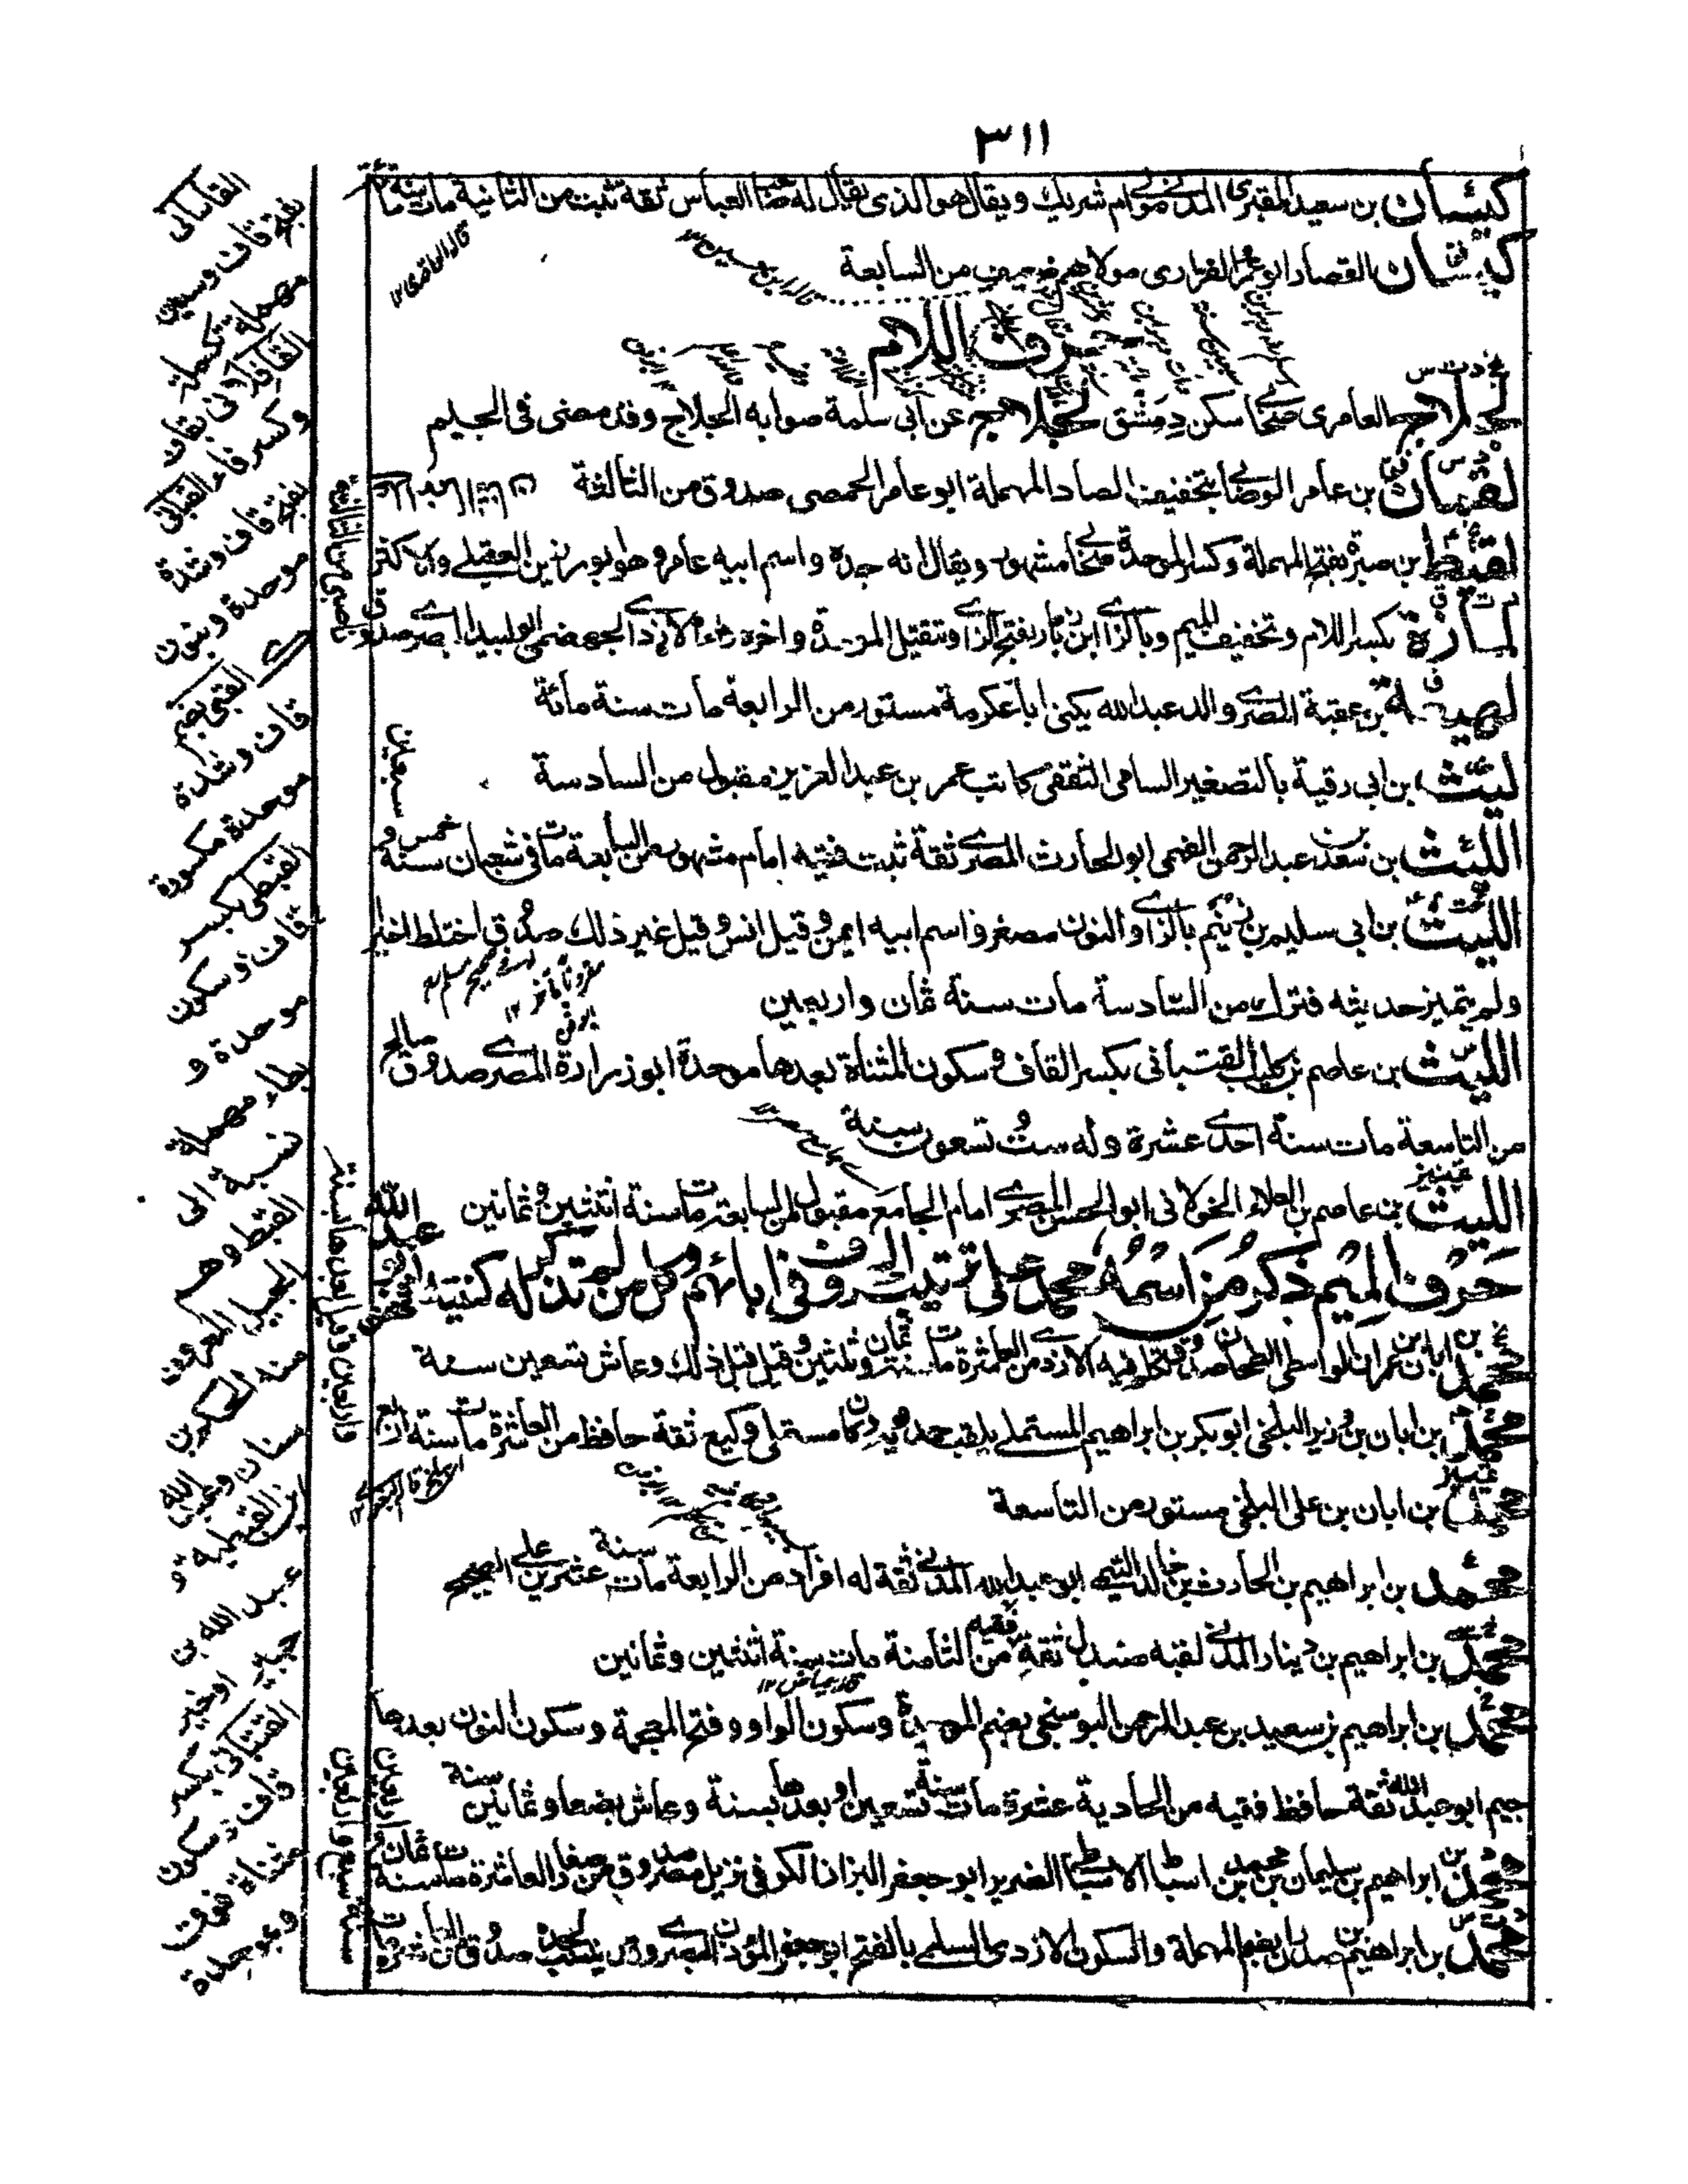 ٣١١
كيسان بن سعيد المقبري المدني مولى ام شريك ويقال هو الذي يقال له صاحب العباس ثقة ثبت من الثانية مات سنة مائة
كيسان القصار ابو عمر الفزاري مولاهم ضعيف من السابعة
حرف اللام
اللجلاج العامري صحابي سكن دمشق لجلاج عن ابي سلمة صوابه الجلاج وقد مضى في الجيم
لقمان بن عامر الوصابي بتخفيف الصاد المهملة ابو عامر الحمصي صدوق من الثالثة
لقيط بن صبرة بفتح المهملة وكسر الموحدة صحابي مشهور ويقال انه جده واسم ابيه عامر وهو ابو رزين العقيلي والاكثر
لمازة بكسر اللام وتخفيف الميم وبالزاي ابن زبار بفتح الزاي وتثقيل الموحدة واخره راء الازدي الجهضمي ابو لبيد البصري صدوق ناصبي من الثالثة
لهيعة بن عقبة المصري والد عبد الله يكنى ابا عكرمة مستور من الرابعة مات سنة مائة
ليث بن ابي رقية بالتصغير الشامي الثقفي كاتب عمر بن عبد العزيز مقبول من السادسة
الليث بن سعد بن عبد الرحمن الفهمي ابو الحارث المصري ثقة ثبت فقيه امام مشهور من السابعة مات في شعبان سنة خمس و سبعين
الليث بن ابي سليم بن زنيم بالزاي والنون مصغر واسم ابيه ايمن وقيل انس وقيل غير ذلك صدوق اختلط اخيرا
ولم يتميز حديثه فترك من السادسة مات سنة ثمان واربعين
الليث بن عاصم بن كليب القتباني بكسر القاف وسكون المثناة بعدها موحدة ابو زرارة المصري صدوق صالح
من التاسعة مات سنة احدى عشرة وله ست تسعون سنة
الليث بن عاصم بن العلاء الخولاني ابو الحسن المصري امام الجامع مقبول من السابعة مات سنة اثنتين وثمانين
حرف الميم ذكر من اسمه محمد على ترتيب الحروف في ابائهم وكل من لم تذكر له كنيته
محمد بن ابان بن عمران الواسطي الطحان صدوق تكلم فيه الازدي من العاشرة مات سنة ثمان وثلثين وقيل قبل ذلك وعاش تسعين سنة
محمد بن ابان بن وزير البلخي ابو بكر بن ابراهيم المستملي يلقب حمدويه وكان مستملي وكيع ثقة حافظ من العاشرة مات سنة اربع
محمد بن ابان بن علي البلخي مستور من التاسعة
محمد بن ابراهيم بن الحارث بن خالد التيمي ابو عبد الله المدني ثقة له افراد من الرابعة مات سنة عشرين على الصحيح
محمد بن ابراهيم بن دينار المدني لقبه صندل ثقة فقيه من الثامنة مات سنة اثنتين وثمانين
محمد بن ابراهيم بن سعيد بن عبد الرحمن البوسنجي بضم الموحدة وسكون الواو وفتح المعجمة وسكون النون بعدها
جيم ابو عبد الله ثقة حافظ فقيه من الحادية عشرة مات سنة تسعين او بعدها بسنة وعاش بضعا وثمانين سنة
محمد بن ابراهيم بن سليمان بن محمد بن اسباط الاسباطي الضرير ابو جعفر البزاز الكوفي نزيل مصر صدوق من صغار العاشرة مات سنة ثمان واربعين
محمد بن ابراهيم بن صدران بضم المهملة والسكون الازدي السلمي بالفتح ابو جعفر المؤذن البصري وقد ينسب لجده صدوق من العاشرة مات
سنة سبع واربعين
القاساني
بفتح قاف وسين
مهملة
وكسر فاء القباني
بفتح قاف وشدة
موحدة وبنون
القبي بضم
قاف وشدة
موحدة مكسورة
القبطي بكسر
قاف وسكون
موحدة و
بطاء مهملة
نسبة الى
القبط وهو
عبد الله بن
جبير او خير
القتباني بكسر
قاف وسكون
مثناة فوق
وبموحدة